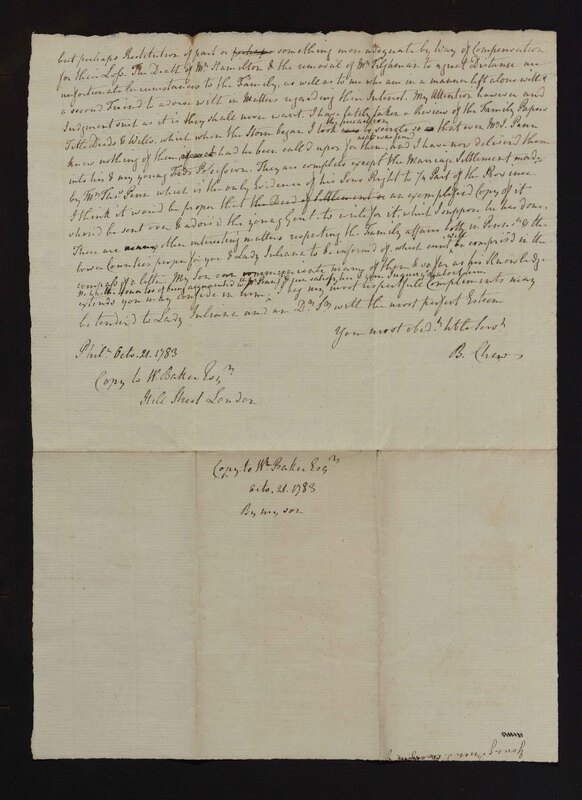 but perhaps Restitution of part or perhaps something more adequate by Way of Compensation
for their Loss. The Death of Mr Hamilton & the removal of Mr Tilghman to a great Distance are
unfortunate Circumstances to the Family, as well as to me who am in a manner left alone with
a second Friend to advise with in Matters regarding their Interest. My Attention however and
Judgment such as it is they shall never want. I have lately taken a Review of the Family Papers
Title Deeds & Wills, which when the Storm began I took the precaution to secrete so that even Mr J. Penn
knew nothing of them had he been called upon for them, and I have now delivered them
into his & my young Frids Possession. They are complete except the Marriage Settlement made
by Mr Thos Penn which is the only Evidence of his Sons Right to Part of the Province
I think it would be proper that the Deed of Settlement or an exemplified Copy of it
shou'd be sent over & advis'd the young Gent. to write for it, which I suppose he has done.
There are many other interesting matters respecting the Family affairs both in Pensa & the
lower Counties proper for you & Lady Juliana to be inform'd of, which can't well be compriz'd in the
compass of a letter. My Son can communicate many of them & so far as his Knowledge
extends you may confide in him. I beg my most respectfull Compliments may
be tender'd to Lady Juliana and am Dr Sr with the most perfect Esteem
Your most obedt hble Servt
B. Chew
Phila Octo. 21. 1783
Copy to W. Baker Esqr
Hill Street London
Copy to Wm Baker Esqr
Octo. 21. 1783
By my son